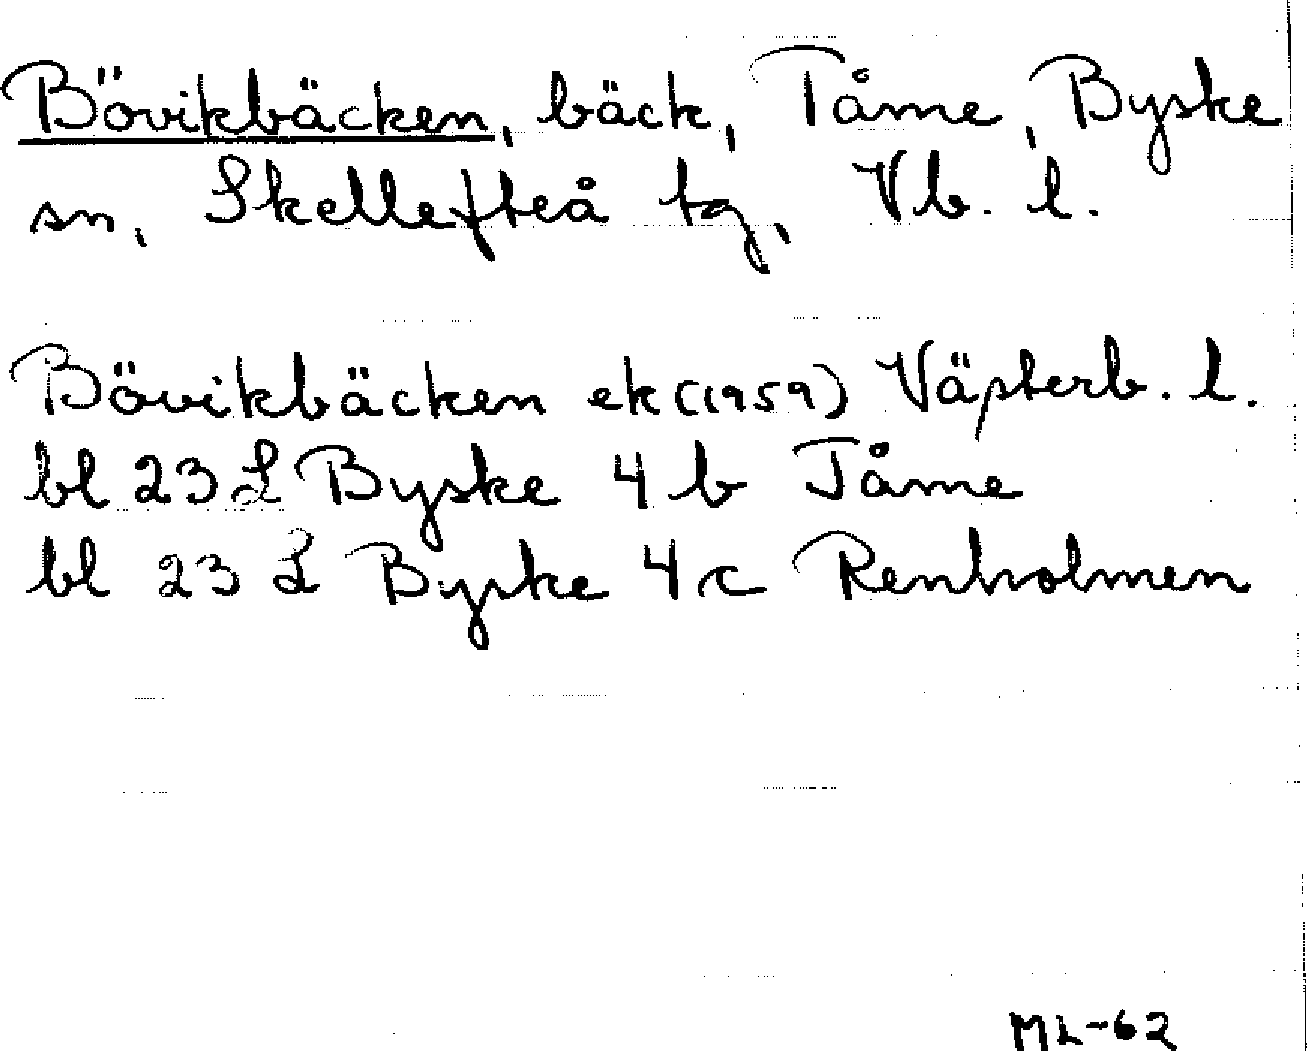 Bövikbäcken, bäck, Tåme, Byske
sn, Skellefteå tg, Vb. l.
Bövikbäcken ek (1959) Västerb. l.
bl 23 L Byske 4 b Tåme
bl 23 L Byske 4 c Renholmen
ML-62